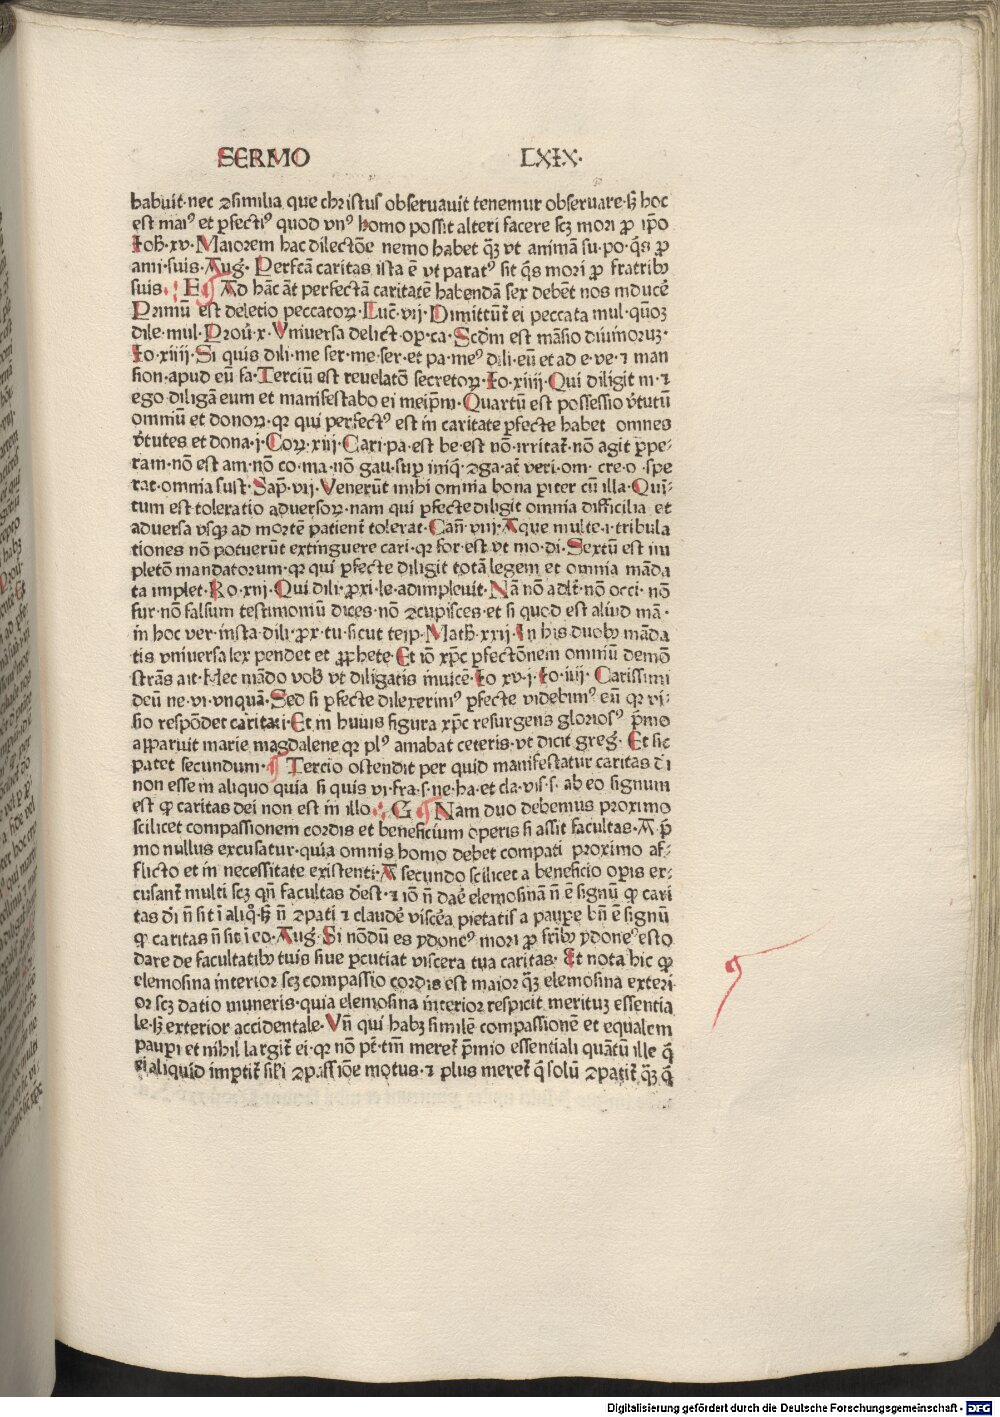 SERMO LXIX·
habuit·nec ꝯsimilia que christus obseruauit tenemur obseruare·sꝫ hoc
est maiꝰ et ꝑfectiꝰ quod vnꝰ homo possit alteri facere scꝫ mori ꝓ ip̄o
Ioh̄·xv·Maiorem hac dilectōe nemo habet qꝫ̄ vt animā su·po·q̄s ꝓ
ami·suis·Auḡ· Perfcā caritas ista ē vt paratꝰ sit q̄s mori ꝓ fratribꝰ
suis· E Ad hāc āt perfectā caritatē habendā sex debēt nos inducē
Primū est deletio peccatoꝝ·Luc̄·vij·Dimittūt̄ ei peccata mul·qm̄ꝫ
dile·mul·Proū·x·Vniuersa delict·op̄·ca·Scd̄m est māsio diuinoruꝫ·
Io·xiiii·Si quis dili·me ser·me·ser·et pa·meꝰ dili·eū·et ad e·ve·⁊ man
sion·apud eū fa·Terciū est reuelatō secretoꝝ·Io·xiiij·Qui diligit m·⁊
ego diligā eum et manifestabo ei meip̄m·Quartū est possessio v̄tutū
omniū et donoꝝ·qꝛ qui perfectꝰ est in caritate ꝑfecte habet omnes
v̄tutes et dona·j·Coꝝ·xiij·Cari·pa·est be·est nō·irritat̄·nō agit ꝑpe⸗
ram·nō est am·nō co·ma·nō gau·suꝑ iniq̄·ꝯga·at̄ veri·om·cre·o·spe
rat·omnia sust·Sap̄·vij·Venerūt mihi omnia bona ꝑiter cū illa·Quī⸗
tum est toleratio aduersoꝝ·nam qui ꝑfecte diligit omnia difficilia et
aduersa vsqꝫ ad mortē patient̄ tolerat·Can̄·viij·Aque multe·i·tribula
tiones nō potuerūt extinguere cari·qꝛ for·est vt mo·di·Sextū est im
pletō mandatorum·qꝛ qui ꝑfecte diligit totā legem et omnia māda
ta implet·Ro·xiij·Qui dili·ꝓxi·le·adimpleuit·Nā nō adlt̄·nō occi·nō
fur·nō falsum testimoniū dices·nō ꝯcupisces·et si quod est aliud mā·
in hoc ver·insta·dili·ꝓx·tu·sicut teip̄·Math̄·xxij·In his duobꝰ māda
tis vniuersa lex pendet et ꝓphete·Et iō xp̄c ꝑfectōnem omniū demō
strās ait·Hec mādo vob̄ vt diligatis inuicē·Io xv·j·Io·iiij·Carissimi
deū ne·vi·vnquā·Sed si ꝑfecte dilexerimꝰ ꝑfecte videbimꝰ eū qꝛ vi⸗
sio respōdet caritati·Et in huius figura xp̄c resurgens gloriosꝰ p̄mo
apparuit marie magdalene qꝛ plꝰ amabat ceteris·vt dicit greḡ· Et sic
patet secundum· Tercio ostendit per quid manifestatur caritas d̄i
non esse in aliquo quia si quis vi·fra·s·ne·ha·et cla·vis·s· ab eo signum
est ꝙ caritas dei non est in illo· G Nam duo debemus proximo
scilicet compassionem cordis et beneficium operis si assit facultas·A p̄
mo nullus excusatur·quia omnis homo debet compati proximo af⸗
flicto et in necessitate existenti·A secundo scilicet a beneficio oꝑis ex⸗
cusant̄ multi scꝫ qn̄ facultas d̄est·⁊ iō n̄ daē elemosinā n̄ ē signū ꝙ cari
tas d̄i n̄ sit ī aliq̊·sꝫ n̄ ꝯpati ⁊ claudē viscēa pietatis a pauꝑe bn̄ ē signū
ꝙ caritas n̄ sit ī eo·Auḡ·Si nōdū es ydoneꝰ mori ꝓ fr̄ibꝰ ydoneꝰ esto
dare de facultatibꝰ tuis siue ꝑcutiat viscera tua caritas· Et nota hic ꝙ
elemosina interior scꝫ compassio cordis est maior qꝫ̄ elemosina exteri
or scꝫ datio muneris·quia elemosina interior respicit merituꝫ essentia
le·sꝫ exterior accidentale·Vn̄ qui habꝫ similē compassionē et equalem
pauꝑi et nihil largit̄ ei·qꝛ nō pt̄·tm̄ meret̄ p̄mio essentiali quātū ille q̄
ei aliquid imꝑtit̄ sibi ꝯpassiōe motus·⁊ plus meret̄ q̄ solū ꝯpatit̄ qꝫ̄ q̄
Digitalisierung gefördert durch die Deutsche Forschungsgemeinschaft - DFG